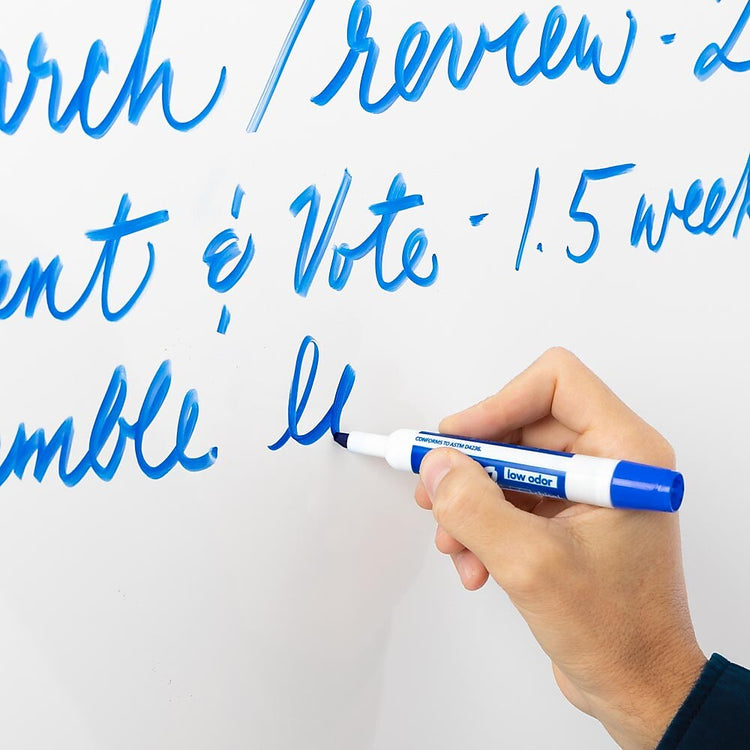 arch / review - 2
ent & Vote - 1.5 week
emble le
CONFORMS TO ASTM D4236.
low odor